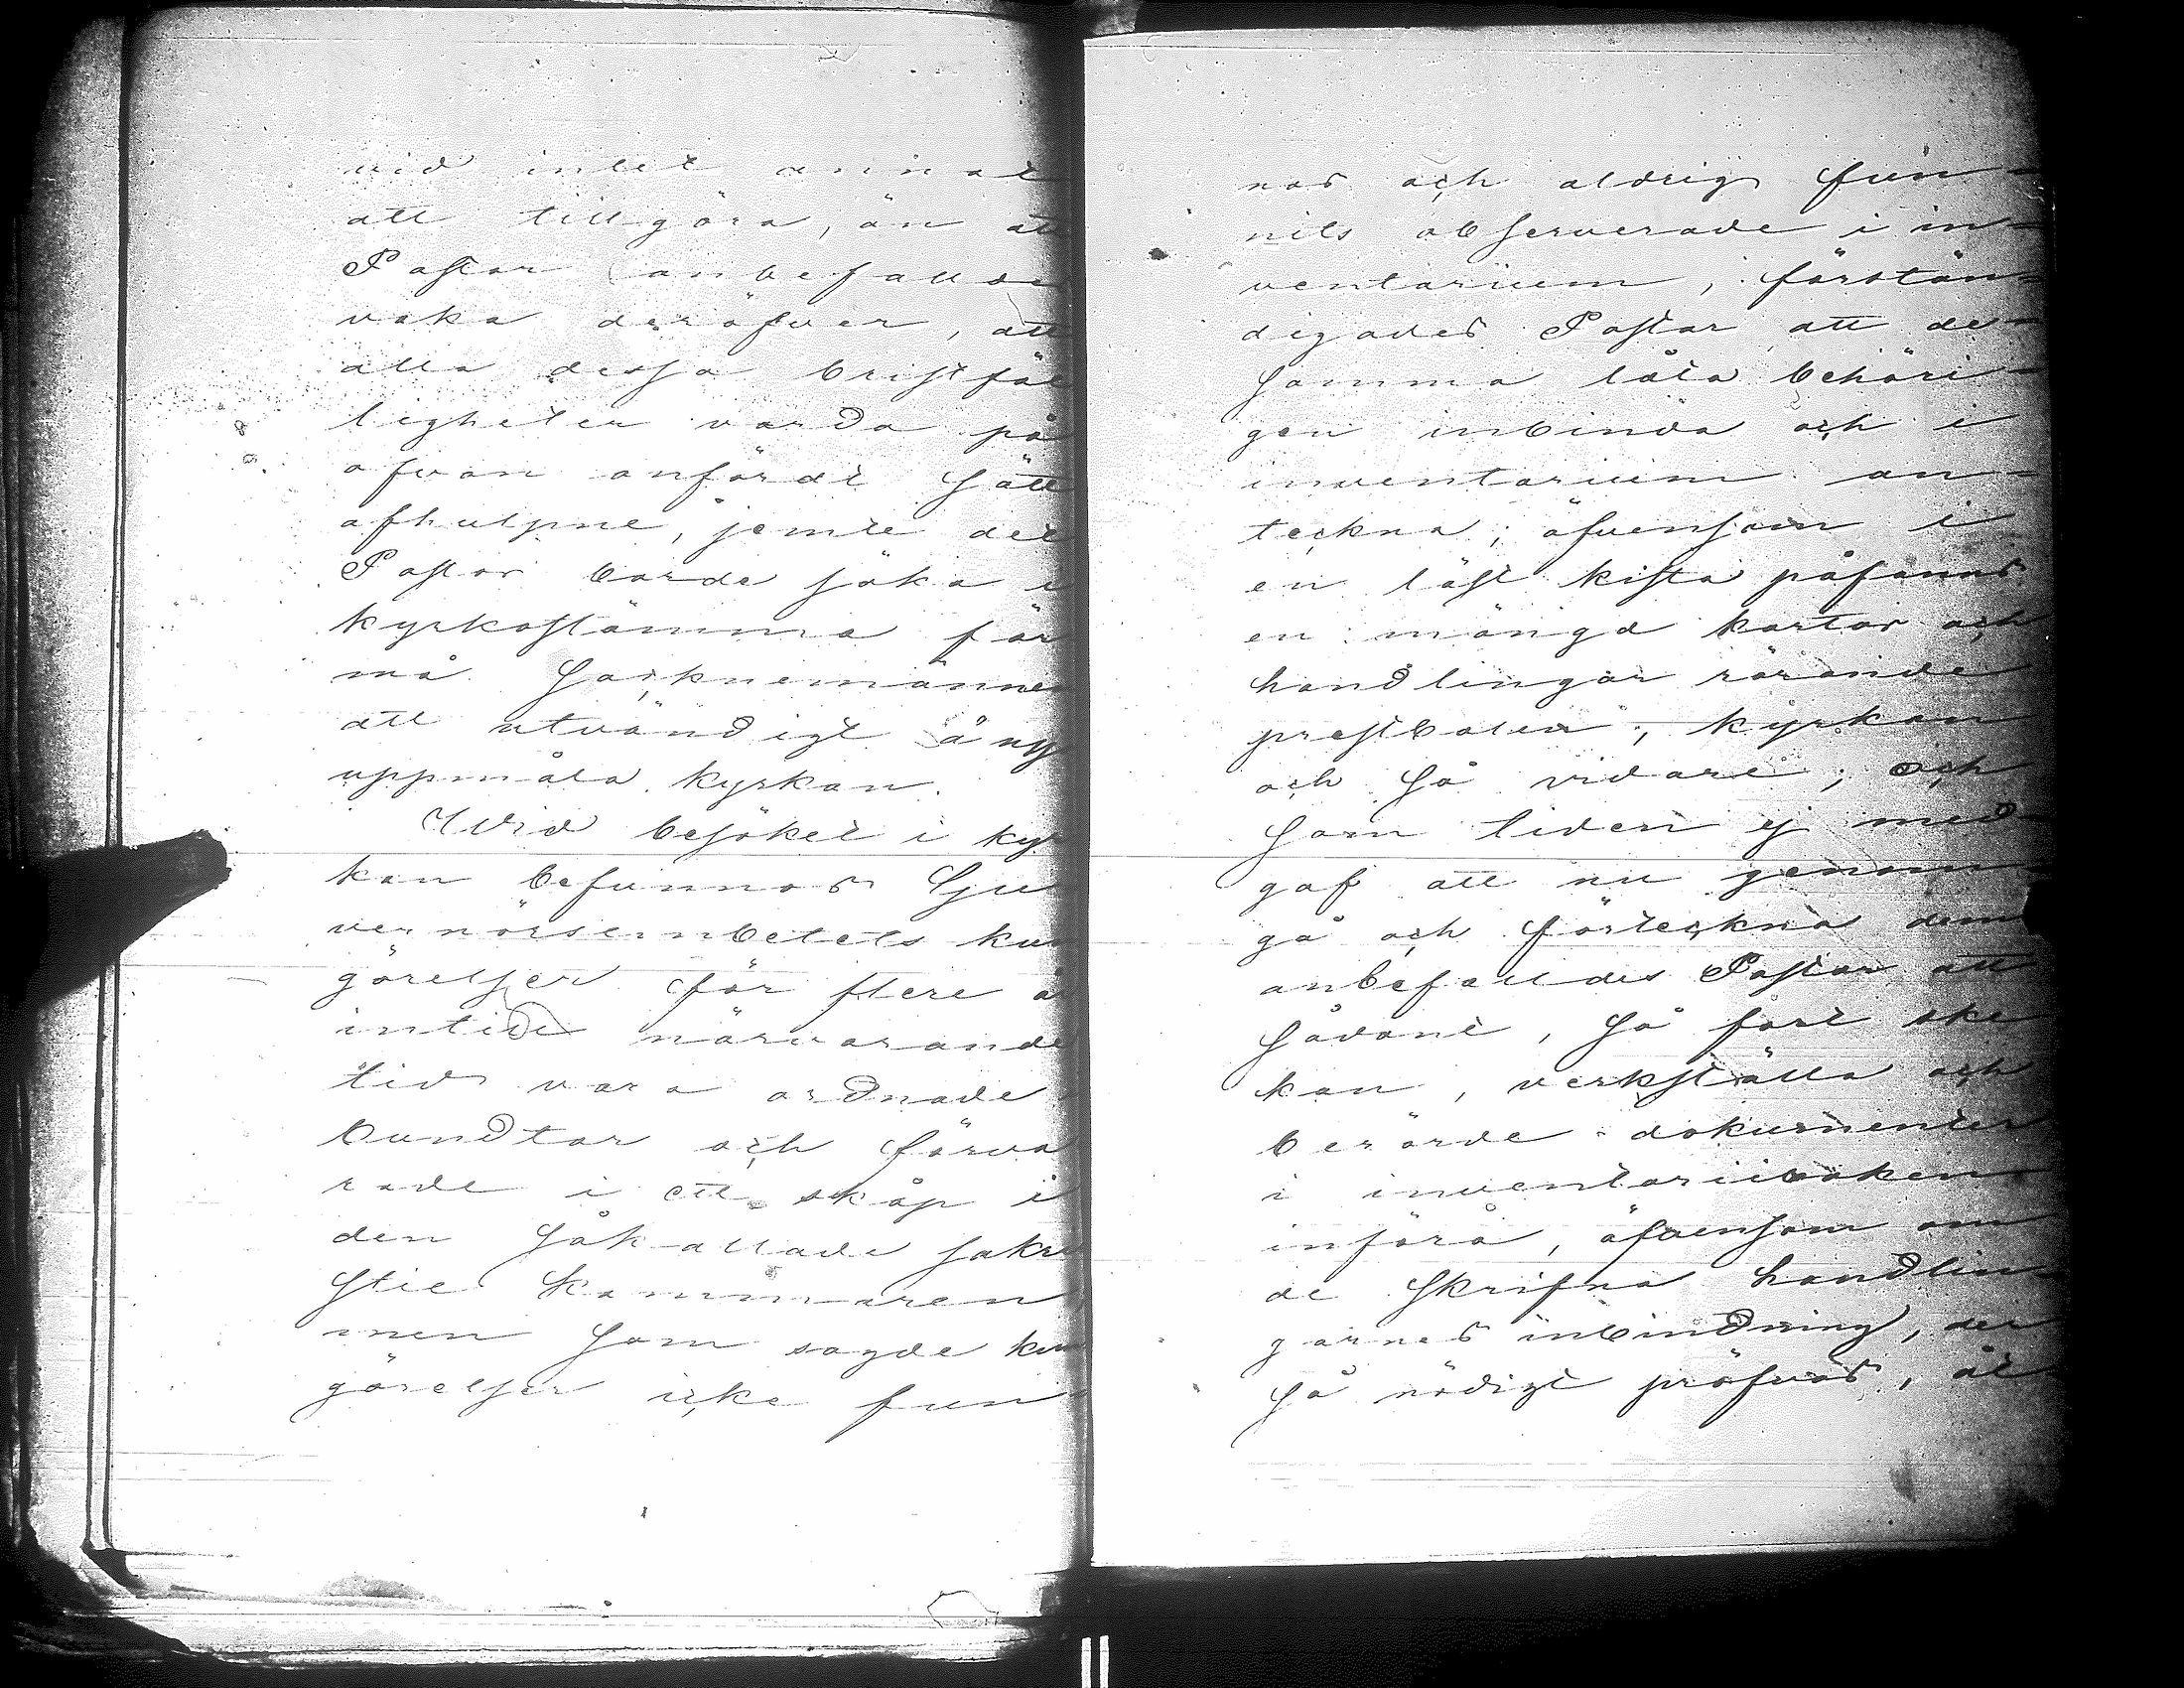 vid intet annat
att tillgöra, än att
Pastor anbefalldes
vaka deröfver, att
alla dessa bristfäl
ligheter varda på
ofvan anfördt sätt
afhulpne, jemte det
Pastor borde söka i
kyrkostämma för
må Socknemännen
att utvändigt å ny
uppmåla kyrkan.
Wid besöket i kyr
kan befunnos Gu
vernörsembetets kun
görelser för flere år
intill närvarande
tid vara ordnade
bundtar och förva
rade i ett skåp i
den såkallade sakri
stie kammaren
men som sagde kun
görelser icke fun
nos och aldrig fun-
nits observerade i in-
ventarium, förstän-
digades Pastor att de-
samma låta behöri-
gen inbinda och i
inventarium an-
teckna; äfvensom i
en låst kista påfanns
en mängd kartor och
handlingar rörande
prestbolen, kyrkan
och så vidare; och
som tiden ej med-
gaf att nu genom
gå och förteckna dem
anbefalldes Pastor att
sådant, så fort ske
kan, verkställa och
berörde dokumenter
i inventariiboken
införa, äfvensom om
de skrifna handlin-
garnes inbindning, der
så nödigt pröfvas, at